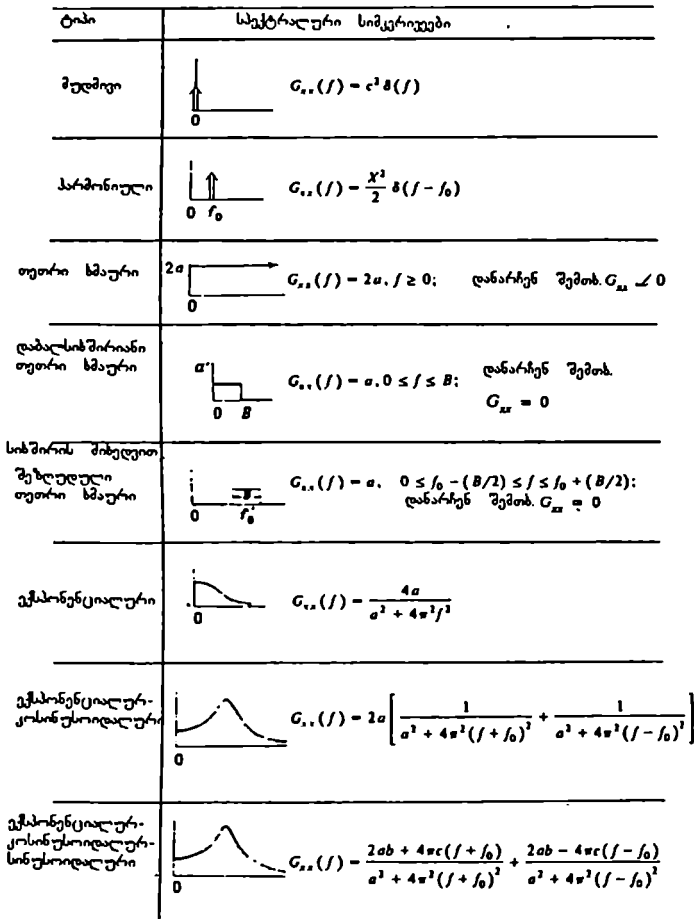 ტიპი სპექტრალური სიმკვრივეები
მუდმივი
0
G_{xx}(f) = c² δ(f)
ჰარმონიული
0 f₀
G_{xx}(f) = \frac{X²}{2} δ(f − f₀)
თეთრი ხმაური
2a
0
G_{xx}(f) = 2a, f ≥ 0; დანარჩენ შემთხ. G_{xx} = 0
დაბალსიხშირიანი
თეთრი ხმაური
a
0 B
G_{xx}(f) = a, 0 ≤ f ≤ B; დანარჩენ შემთხ.
G_{xx} = 0
სიხშირის მიხედვით
შეზღუდული
თეთრი ხმაური
B
0 f₀
G_{xx}(f) = a, 0 ≤ f₀ − (B/2) ≤ f ≤ f₀ + (B/2);
დანარჩენ შემთხ. G_{xx} = 0
ექსპონენციალური
0
G_{xx}(f) = \frac{4a}{a² + 4π²f²}
ექსპონენციალურ-
კოსინუსოიდალური
0
G_{xx}(f) = 2a [ \frac{1}{a² + 4π²(f + f₀)²} + \frac{1}{a² + 4π²(f − f₀)²} ]
ექსპონენციალურ-
კოსინუსოიდალურ-
სინუსოიდალური
0
G_{xx}(f) = \frac{2ab + 4πc(f + f₀)}{a² + 4π²(f + f₀)²} + \frac{2ab − 4πc(f − f₀)}{a² + 4π²(f − f₀)²}